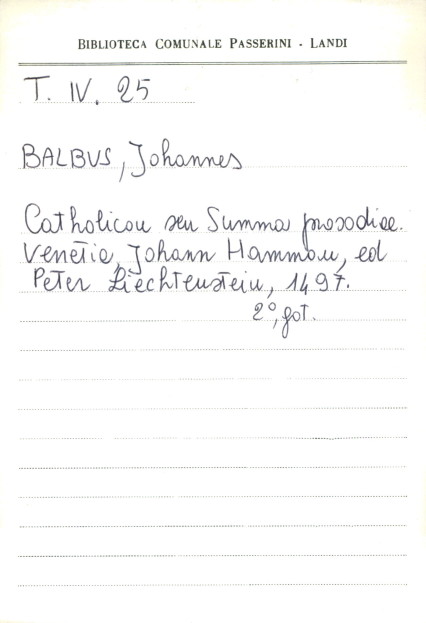 BIBLIOTECA COMUNALE PASSERINI - LANDI
T. IV. 25
BALBUS, Johannes
Catholicon seu Summa prosodiae.
Venetia, Johann Hammon, ed
Peter Liechtenstein, 1497.
2°, got.